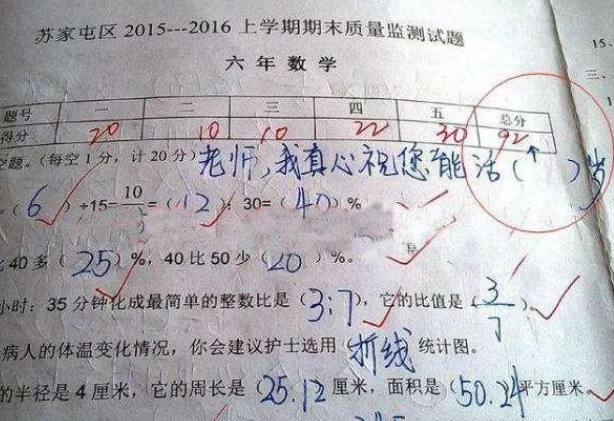 苏家屯区 2015---2016 上学期期末质量监测试题
六 年 数 学
题号 一 二 三 四 五 总分
得分 20 10 10 22 30 92
空题。（每空 1 分，计 20 分） 老师，我真心祝您能活（ ↑ ）岁
=（ 6 ）÷15= 10/ =（ 12 ）：30=（ 40 ）%
比 40 多（ 25 ）%，40 比 50 少（ 20 ）%。
小时：35 分钟化成最简单的整数比是（ 3:7 ），它的比值是（ 3/7 ）
病人的体温变化情况，你会建议护士选用（ 折线 统计图。
的半径是 4 厘米，它的周长是（ 25.12 厘米，面积是（ 50.24 平方厘米。
15·
三、